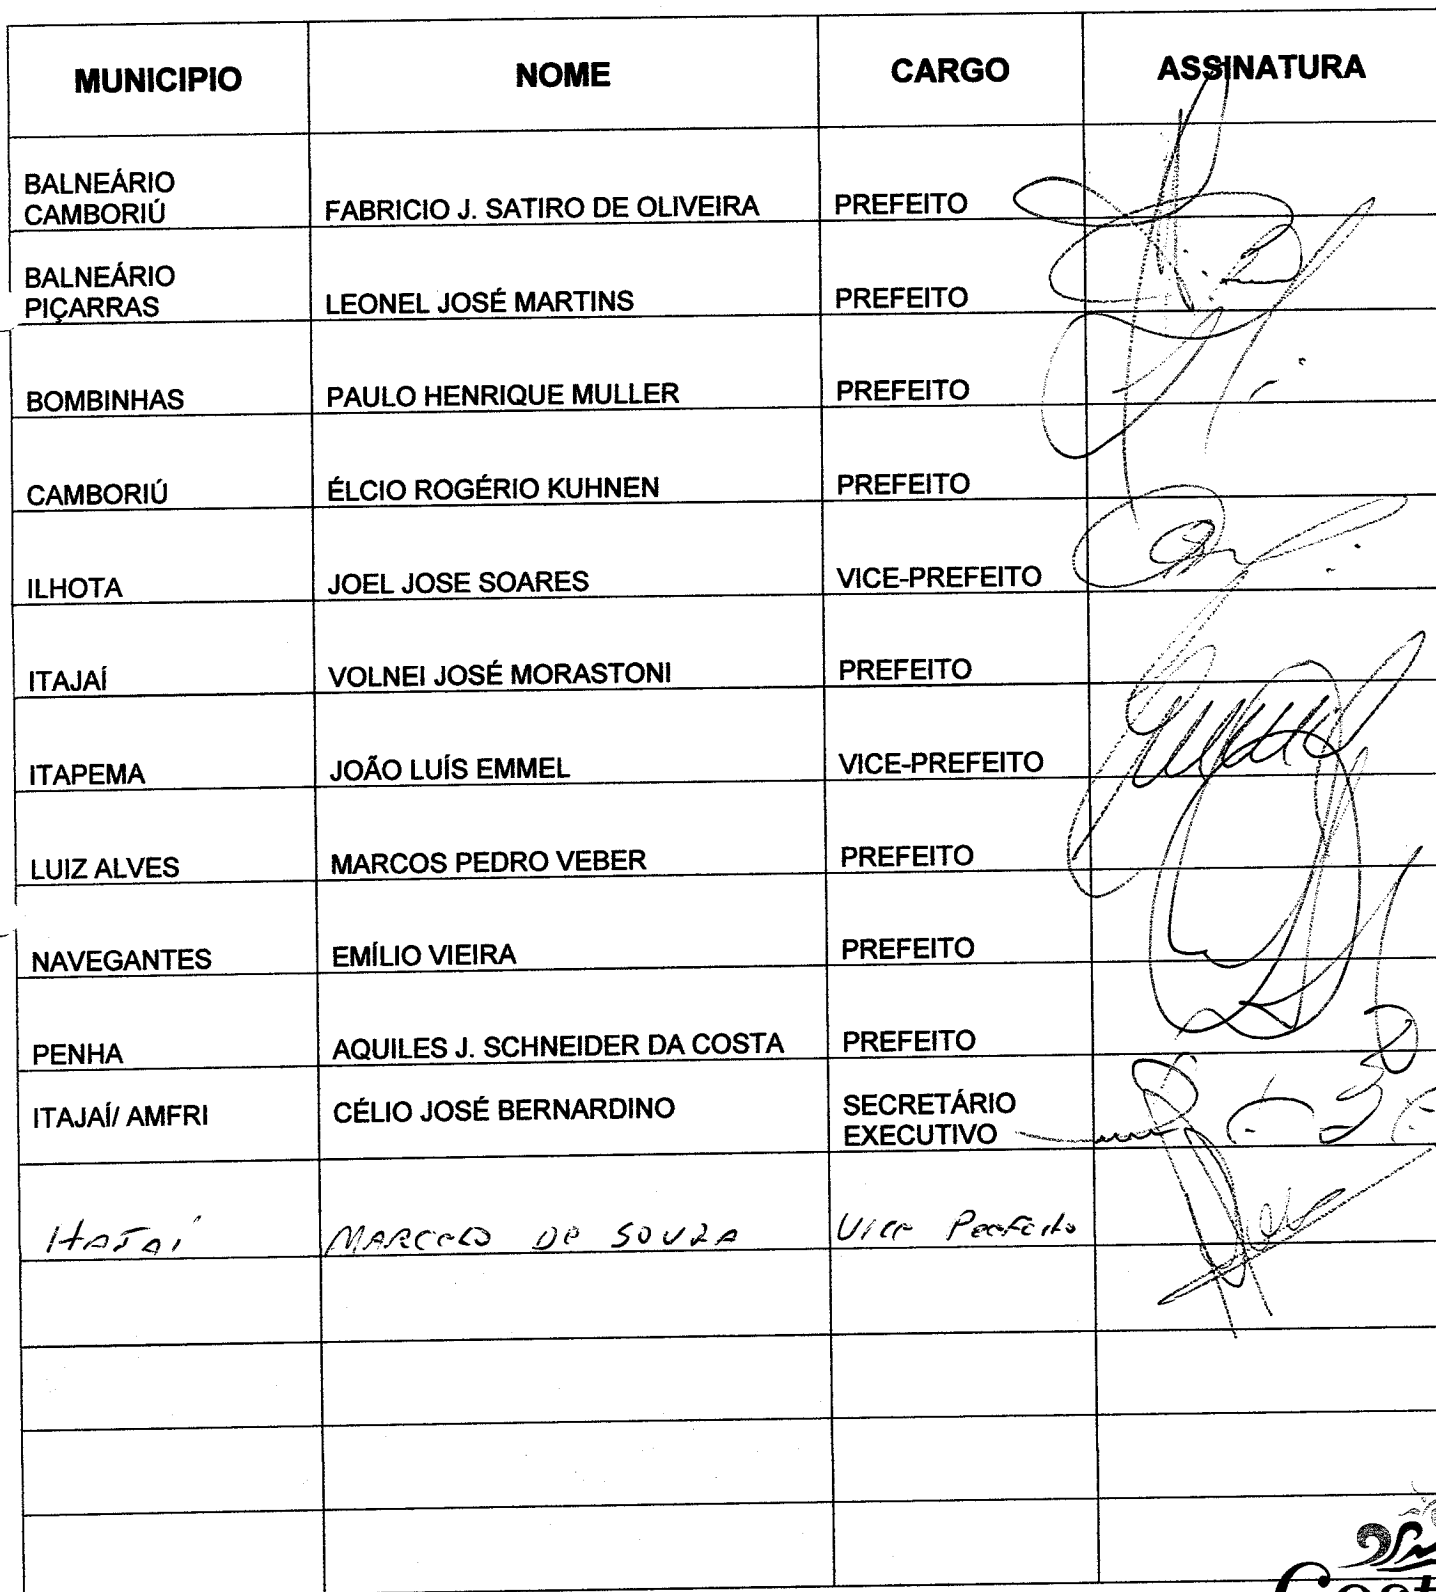 MUNICIPIO NOME CARGO ASSINATURA
BALNEÁRIO
CAMBORIÚ FABRICIO J. SATIRO DE OLIVEIRA PREFEITO
BALNEÁRIO
PIÇARRAS LEONEL JOSÉ MARTINS PREFEITO
BOMBINHAS PAULO HENRIQUE MULLER PREFEITO
CAMBORIÚ ÉLCIO ROGÉRIO KUHNEN PREFEITO
ILHOTA JOEL JOSE SOARES VICE-PREFEITO
ITAJAÍ VOLNEI JOSÉ MORASTONI PREFEITO
ITAPEMA JOÃO LUÍS EMMEL VICE-PREFEITO
LUIZ ALVES MARCOS PEDRO VEBER PREFEITO
NAVEGANTES EMÍLIO VIEIRA PREFEITO
PENHA AQUILES J. SCHNEIDER DA COSTA PREFEITO
ITAJAÍ/ AMFRI CÉLIO JOSÉ BERNARDINO SECRETÁRIO
EXECUTIVO
Itajaí MARCELO DE SOUZA Vice Prefeito